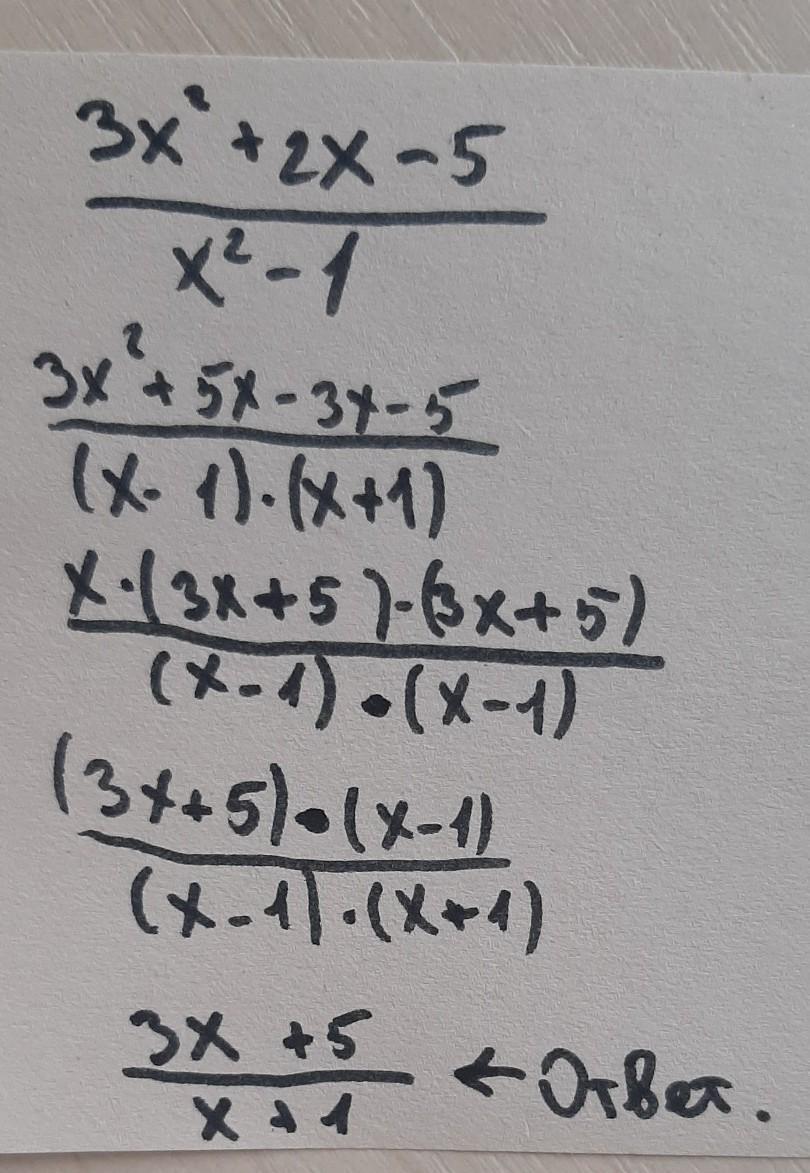 3x² + 2x - 5
x² - 1
3x² + 5x - 3x - 5
(x - 1) · (x + 1)
x · (3x + 5) - (3x + 5)
(x - 1) · (x - 1)
(3x + 5) · (x - 1)
(x - 1) · (x + 1)
3x + 5 ← Ответ.
x + 1